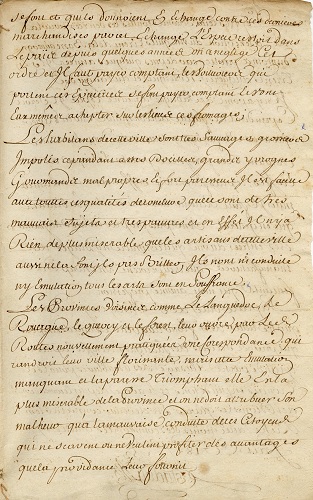 se font et qui donnoient Echange contre des
marchandises
depuis quelques années on a negligé Cet
ordre et Il faut payer comptant, les
portent ces Epiceries se font payer comptant
acheter sur les lieux ces fromages;
Les habitans de cette ville sont tres Sauvages, grossiers
Impolis cependant assés Dociles, grands yvrognes
Gourmands malpropres, et fort paresseux Il est facile
avec toutes ces qualités de connoître quils sont de tres
mauvais Sujets et tres pauvres et en Effet Il n'y a
Rien de plus miserable que les artisans de cette ville
aussi Ils nont ni conduite
ny Emulation tous les arts sont en Souffrance.
Les Provinces Voisines comme Le Languedoc, Le
Rouergue, le quercy et le forest, leur ouvre par Les
Routes nouvellement pratiquées une Correspondance qui
randroit leur ville florissante, mais cette Emulation
manquant et la paresse Triomphant elle Est la
plus miserable de la Province et on doit attribuer Son
malheur qu'a la mauvaise conduite de ces Citoyens
qui ne scavent ou ne veulent profiter des avantages
que la providance Leur fournit